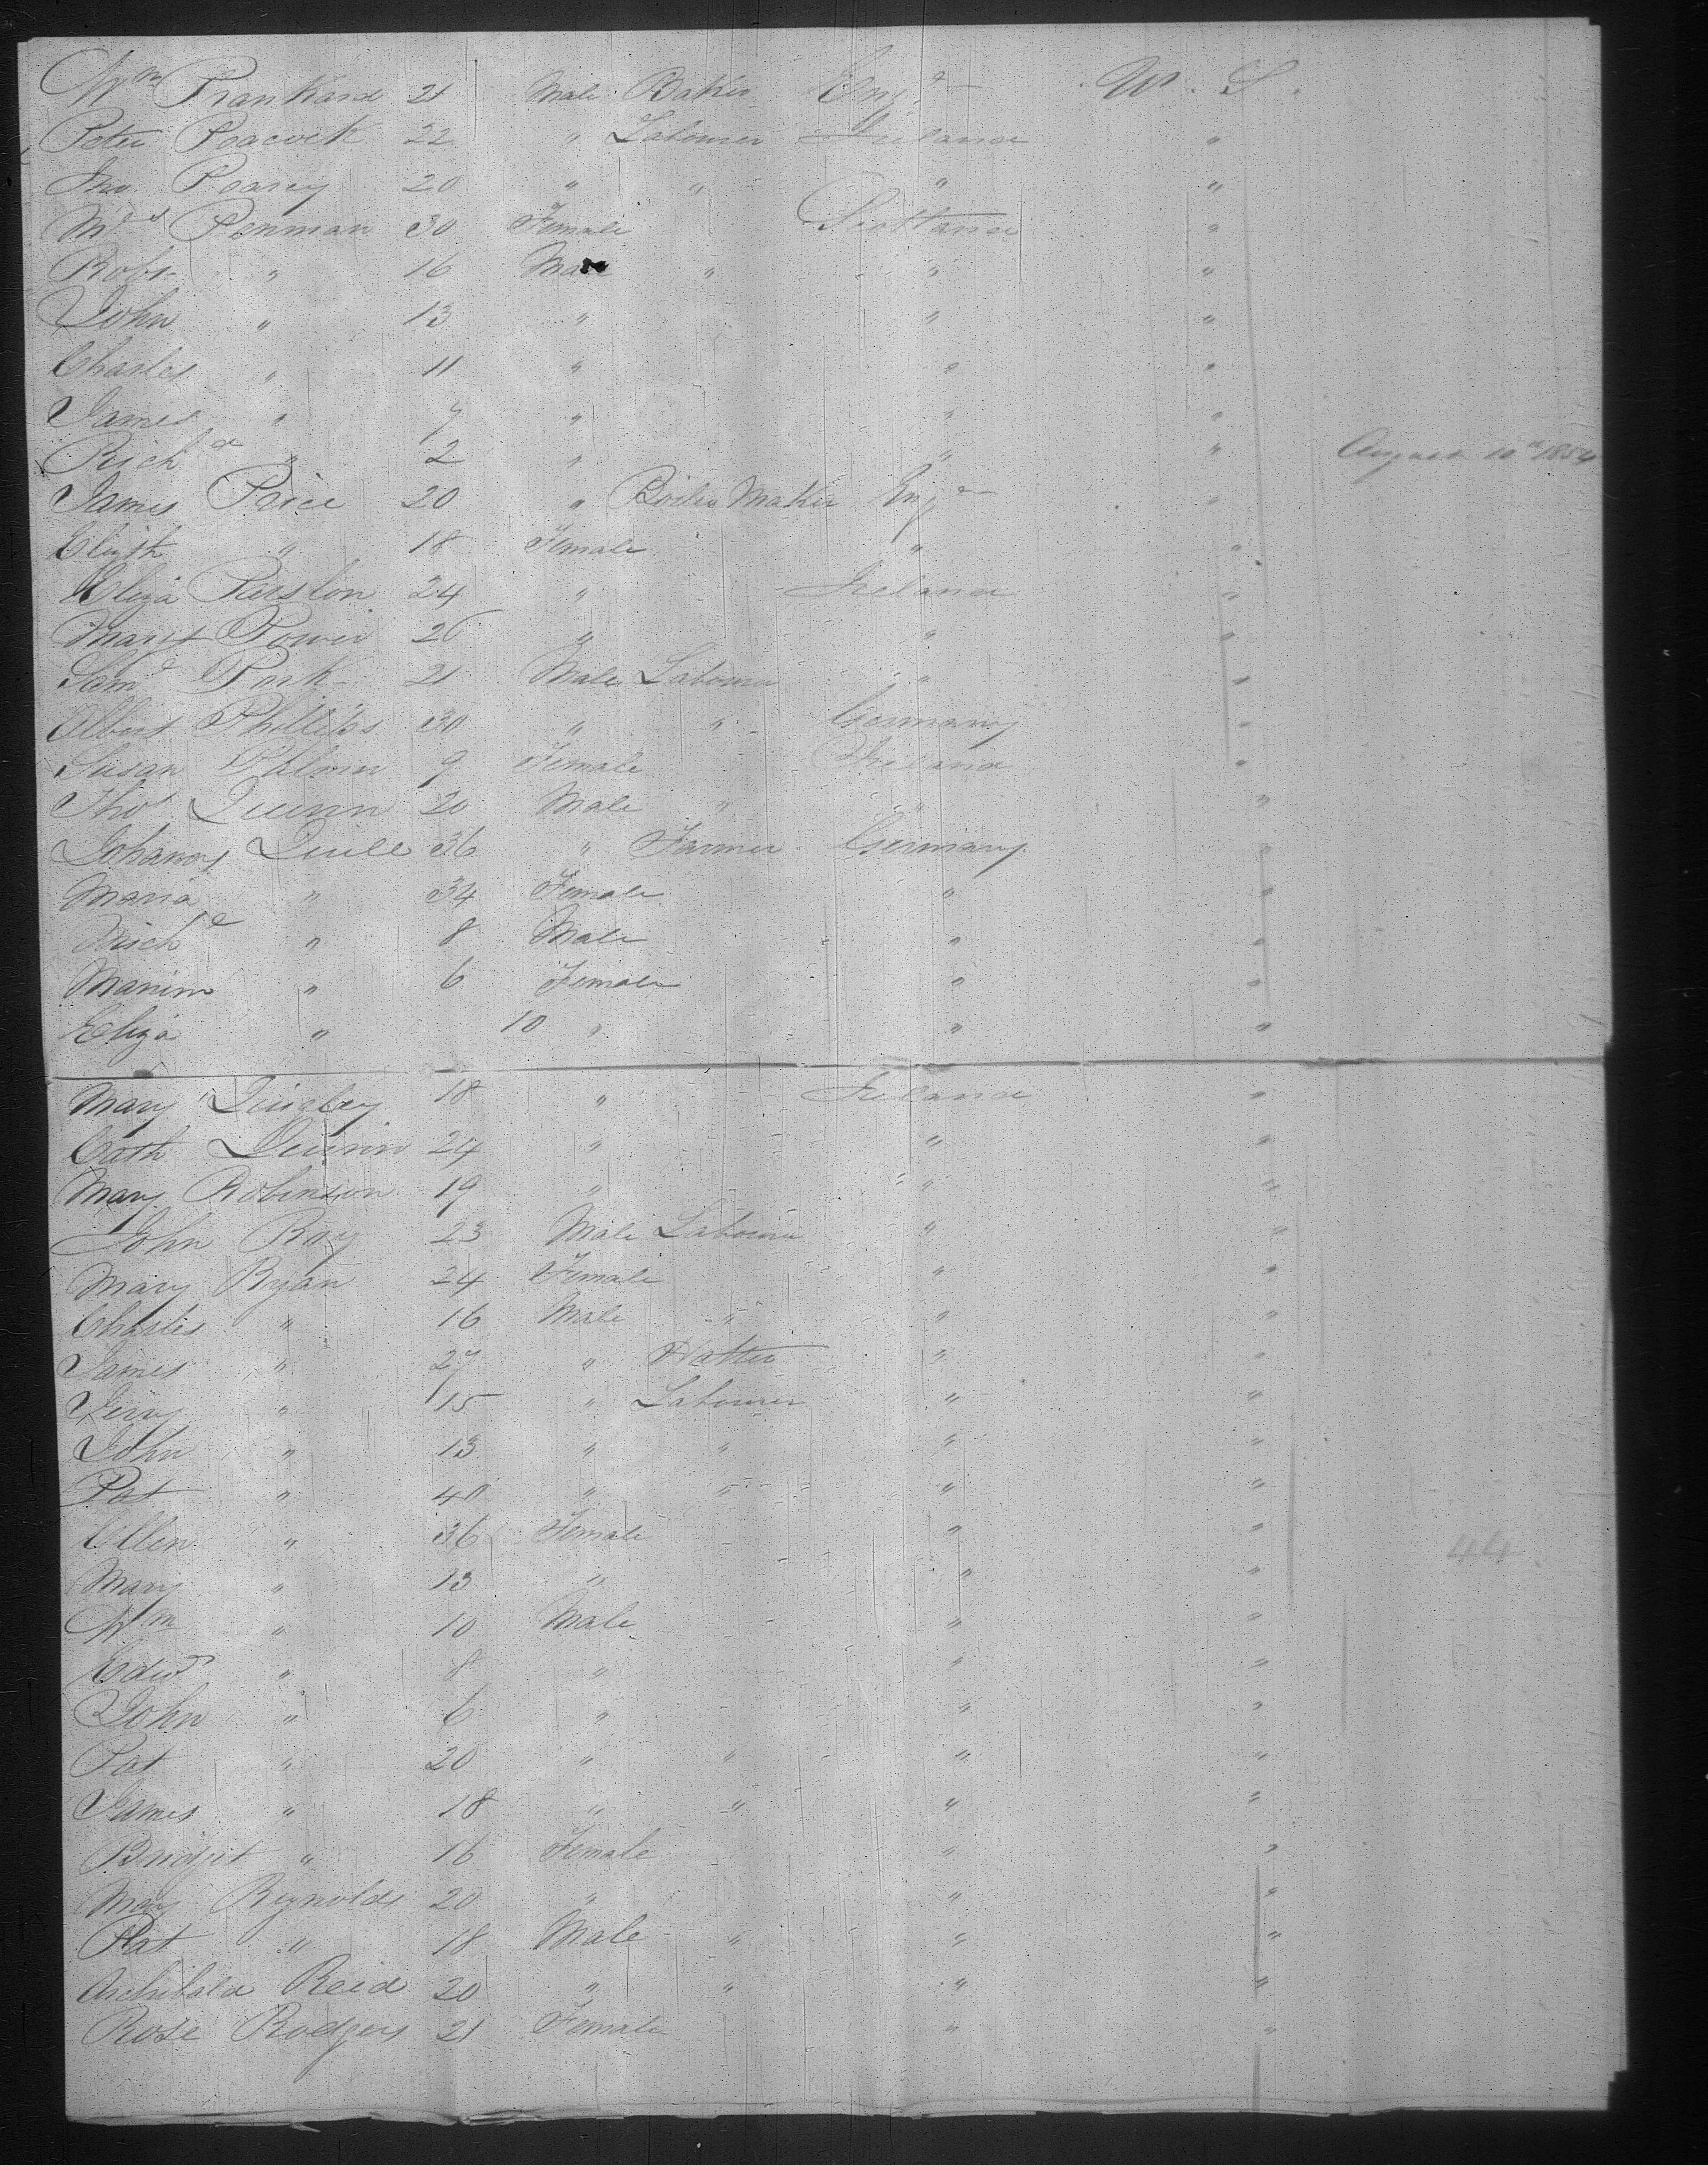 Wm Prankard 21 Male Baker Engd U. S.
Peter Peacock 22 " Labourer Ireland "
Jno Pearcy 20 " " " "
Mrs Penman 30 Female Scotland "
Robt " 16 Male " " "
John " 13 " " "
Charles " 11 " " "
James " 7 " " "
Richd " 2 " " " August 10th 1854
James Price 20 " Boiler Maker Engd "
Elizth " 18 Female " "
Eliza 24 " Ireland "
Margt Power 26 " " "
Saml Park 21 Male Labourer " "
Albert Phillips 30 " " Germany "
Susan 9 Female Ireland "
Thos Quinn 20 Male " " "
Quill 36 " Farmer Germany "
Maria " 34 Female " "
Michl " 8 Male " "
" 6 Female " "
Eliza " 10 " " "
Mary Quigley 18 " Ireland "
Cath Quinn 24 " " "
Mary Robinson 19 " " "
John Roy 23 Male Labourer " "
Mary Ryan 24 Female " "
Charles " 16 Male " " "
James " 27 " Hatter " "
Jerry " 15 " Labourer " "
John " 13 " " " "
Pat " 40 " " " "
Ellen " 36 Female " "
Mary " 13 " " "
Wm " 10 Male " "
Edwd " 8 " " "
John " 6 " " "
Pat " 20 " " " "
James " 18 " " " "
Bridget " 16 Female " "
Mary Reynolds 20 " " "
Pat " 18 Male " " "
Archibald Reid 20 " " " "
Rose Rodgers 21 Female " "
44